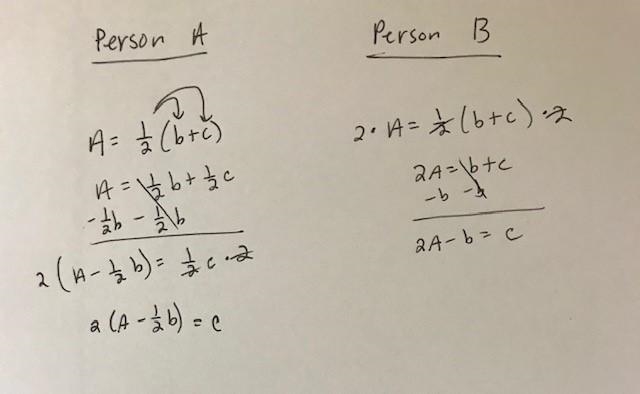 Person A
A = 1/2 (b+c)
A = 1/2 b + 1/2 c
-1/2 b - 1/2 b
2 (A - 1/2 b) = 1/2 c · 2
2 (A - 1/2 b) = c
Person B
2 · A = 1/2 (b+c) · 2
2A = b+c
-b -b
2A - b = c